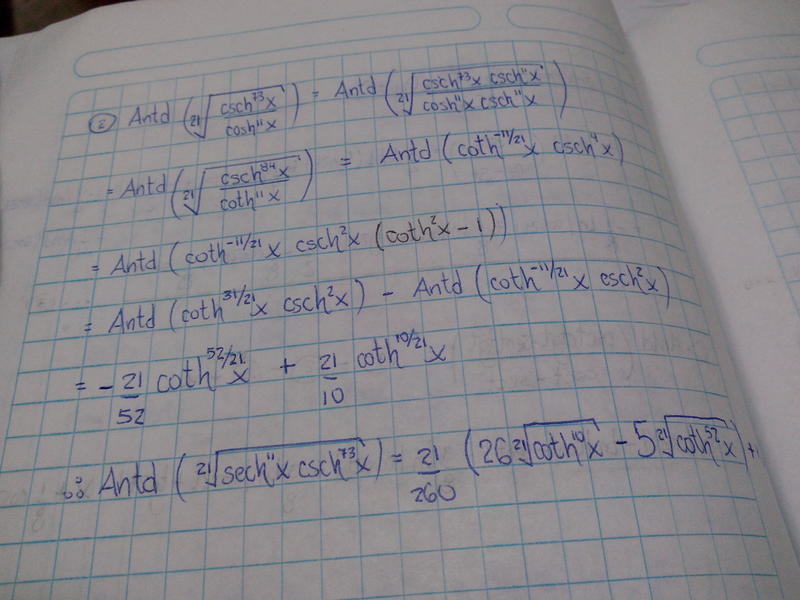 ② Antd (²¹√(csch⁷³x / cosh¹¹x)) = Antd (²¹√(csch⁷³x csch¹¹x / cosh¹¹x csch¹¹x))
= Antd (²¹√(csch⁸⁴x / coth¹¹x)) = Antd (coth^(-11/21)x csch⁴x)
= Antd (coth^(-11/21)x csch²x (coth²x - 1))
= Antd (coth^(31/21)x csch²x) - Antd (coth^(-11/21)x csch²x)
= - 21/52 coth^(52/21)x + 21/10 coth^(10/21)x
∴ Antd (²¹√(sech¹¹x csch⁷³x)) = 21/260 (26 ²¹√(coth¹⁰x) - 5 ²¹√(coth⁵²x)) +